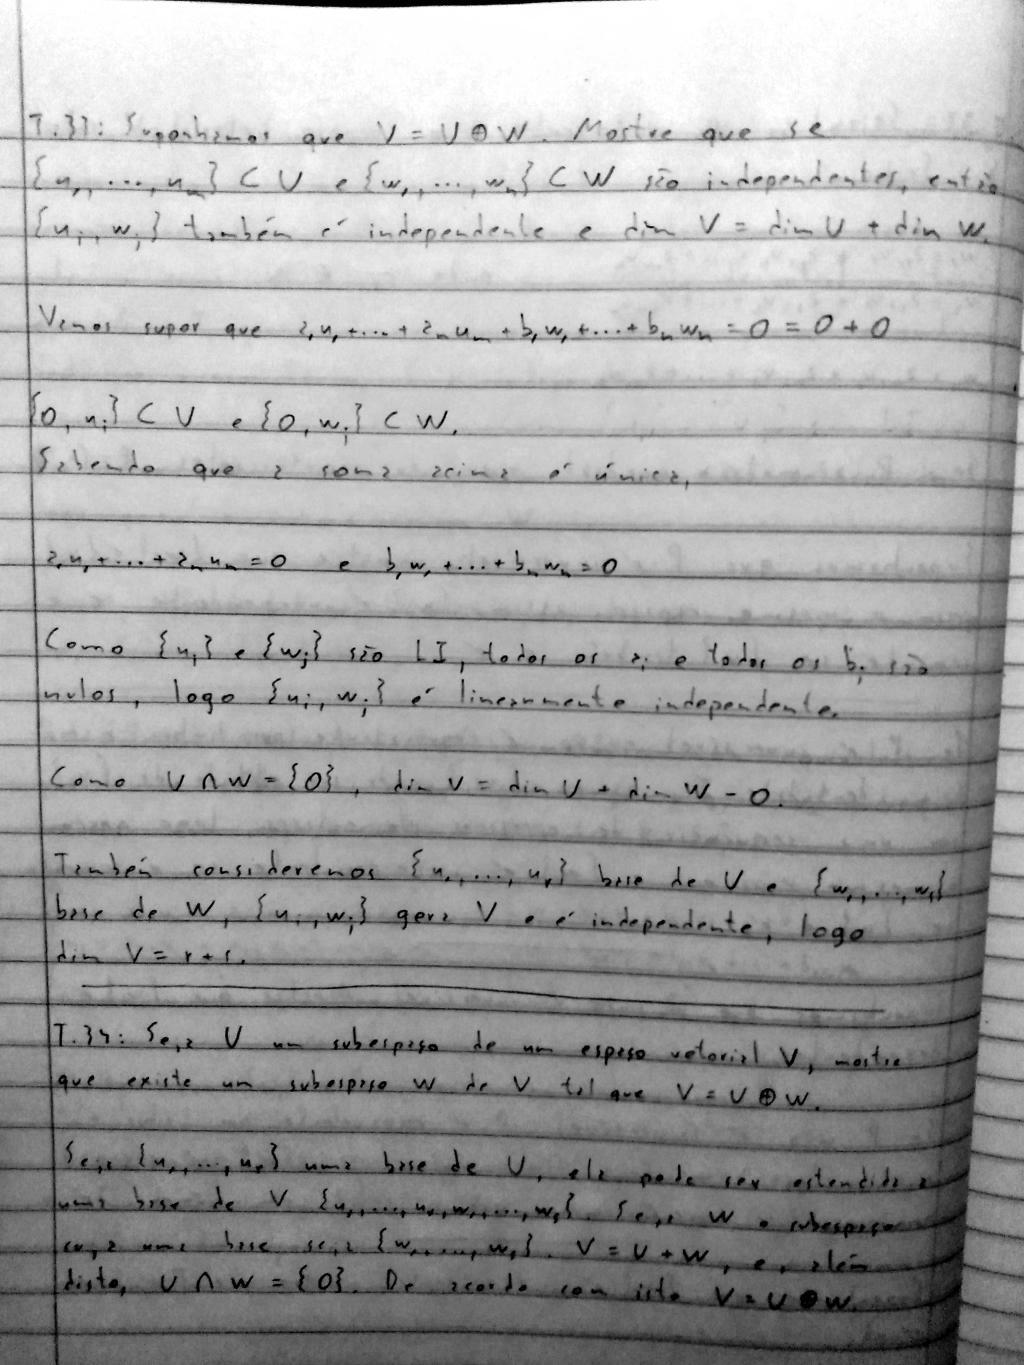 T.33: Suponhamos que V = U ⊕ W. Mostre que se
{u₁, ..., uₘ} ⊂ U e {w₁, ..., wₙ} ⊂ W são independentes, então
{uᵢ, wⱼ} também é independente e dim V = dim U + dim W.
Vamos supor que a₁u₁ + ... + aₘuₘ + b₁w₁ + ... + bₙwₙ = 0 = 0 + 0
{0, uᵢ} ⊂ U e {0, wⱼ} ⊂ W.
Sabendo que a soma acima é única,
a₁u₁ + ... + aₘuₘ = 0 e b₁w₁ + ... + bₙwₙ = 0
Como {uᵢ} e {wⱼ} são LI, todos os aᵢ e todos os bⱼ são
nulos, logo {uᵢ, wⱼ} é linearmente independente.
Como U ∩ W = {0}, dim V = dim U + dim W - 0.
Também consideremos {u₁, ..., uᵣ} base de U e {w₁, ..., wₛ}
base de W, {uᵢ, wⱼ} gera V e é independente, logo
dim V = r + s.
T.34: Seja U um subespaço de um espaço vetorial V, mostre
que existe um subespaço W de V tal que V = U ⊕ W.
Seja {u₁, ..., uᵣ} uma base de U, ela pode ser estendida a
uma base de V {u₁, ..., uᵣ, w₁, ..., wₛ}. Seja W o subespaço
cuja uma base seja {w₁, ..., wₛ}. V = U + W, e, além
disto, U ∩ W = {0}. De acordo com isto V = U ⊕ W.